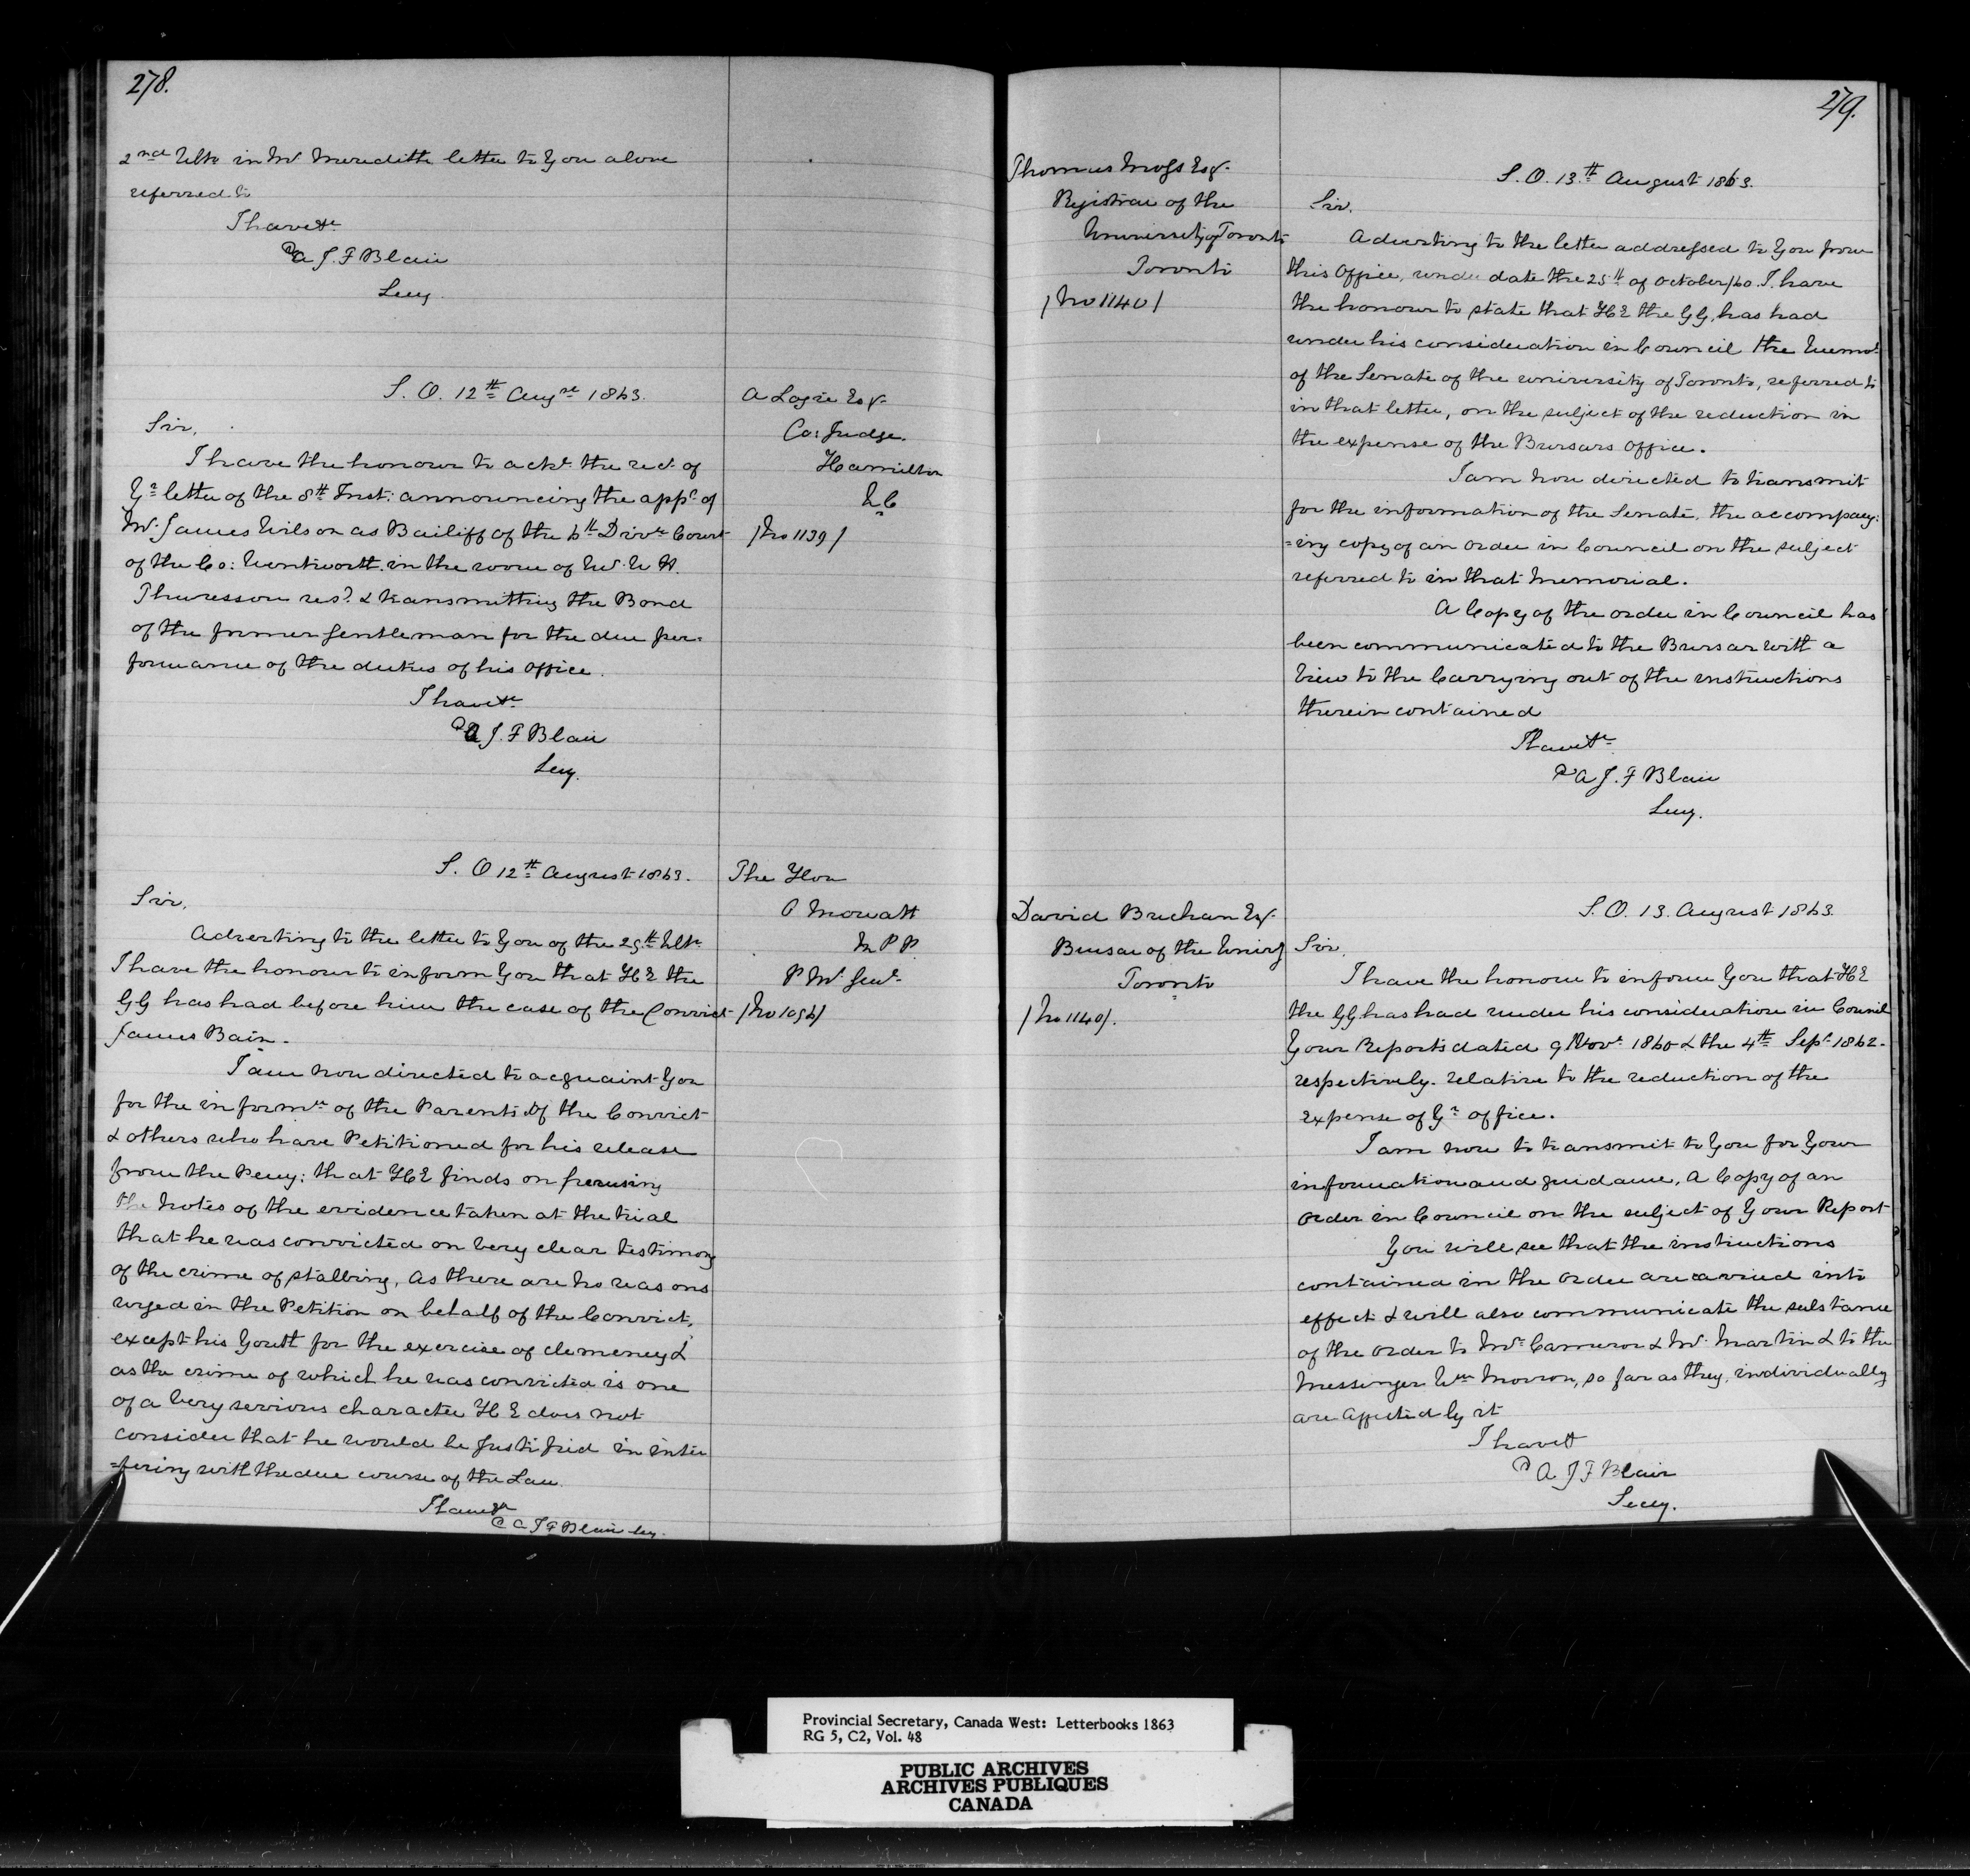 278.
2nd Ulto in Mr Meredith letter to You alone
referred to
I have &c
A J. F Blair
Secy.
S. O. 12th Augst 1863.
Sir,
I have the honour to acke the rect of
Yr letter of the 8th Inst: announcing the appt of
Mr James Wilson as Bailiff of the 6th Divn Court
of the Co: Wentworth in the room of Mr
Thuresson resd & transmitting the Bond
of the former gentleman for the due per-
formance of the duties of his Office.
I have &c
A J. F Blair
Secy.
A Logie Esqr
Co: Judge.
Hamilton
U C
/No 1139/
S. O 12th August 1863.
Sir,
Adverting to the letter to You of the 29th Ulto
I have the honour to inform You that H E the
G G has had before him the case of the Convict
James Bain.
I am now directed to acquaint You
for the informn of the Parents of the Convict
& others who have Petitioned for his release
from the Peny: that H E finds on perusing
the Notes of the evidence taken at the trial
that he was convicted on very clear testimony
of the crime of stabbing, As there are no reasons
urged in the Petition on behalf of the Convict,
except his Youth for the exercise of clemency &
as the crime of which he was convicted is one
of a very serious character H E does not
consider that he would be justified in inter
=fering with the due course of the Law.
I have &c
A J F Blair Secy.
The Hon
O Mowatt
M P P
P Mr Genl
/No 1096/
279.
Thomas Moss Esqr
Registrar of the
University of Toronto
Toronto
/No 1140/
S. O. 13th August 1863.
Sir.
Adverting to the letter addressed to You from
this Office, under date the 25th of October/60. I have
the honour to state that H E the G G, has had
under his consideration in Council the Meml
of the Senate of the University of Toronto, referred to
in that letter, on the subject of the reduction in
the expense of the Bursars Office.
I am now directed to transmit
for the information of the Senate, the accompany:
=ing copy of an Order in Council on the subject
referred to in that Memorial.
A Copy of the order in Council has
been communicated to the Bursar with a
View to the Carrying out of the instructions
therein contained
I have &c
A J. F Blair
Secy.
David Buchan Esqr
Bursar of the Univy
Toronto
/No 1140/.
S. O. 13. August 1863.
Sir,
I have the honour to inform You that H E
the G G has had under his consideration in Council
Your Reports dated 9 Novr 1860 & the 4th Sepr 1862.
respectively. relative to the reduction of the
expense of Yr office.
I am now to transmit to You for Your
information and guidance, A Copy of an
Order in Council on the subject of Your Report
You will see that the instructions
contained in the Order are carried into
effect & will also communicate the substance
of the Order to Mr Cameron & Mr Martin & to the
Messenger Wm Morrow, so far as they, individually
are affected by it
I have &c
A. J F Blair
Secy.
Provincial Secretary, Canada West: Letterbooks 1863
RG 5, C2, Vol. 48
PUBLIC ARCHIVES
ARCHIVES PUBLIQUES
CANADA